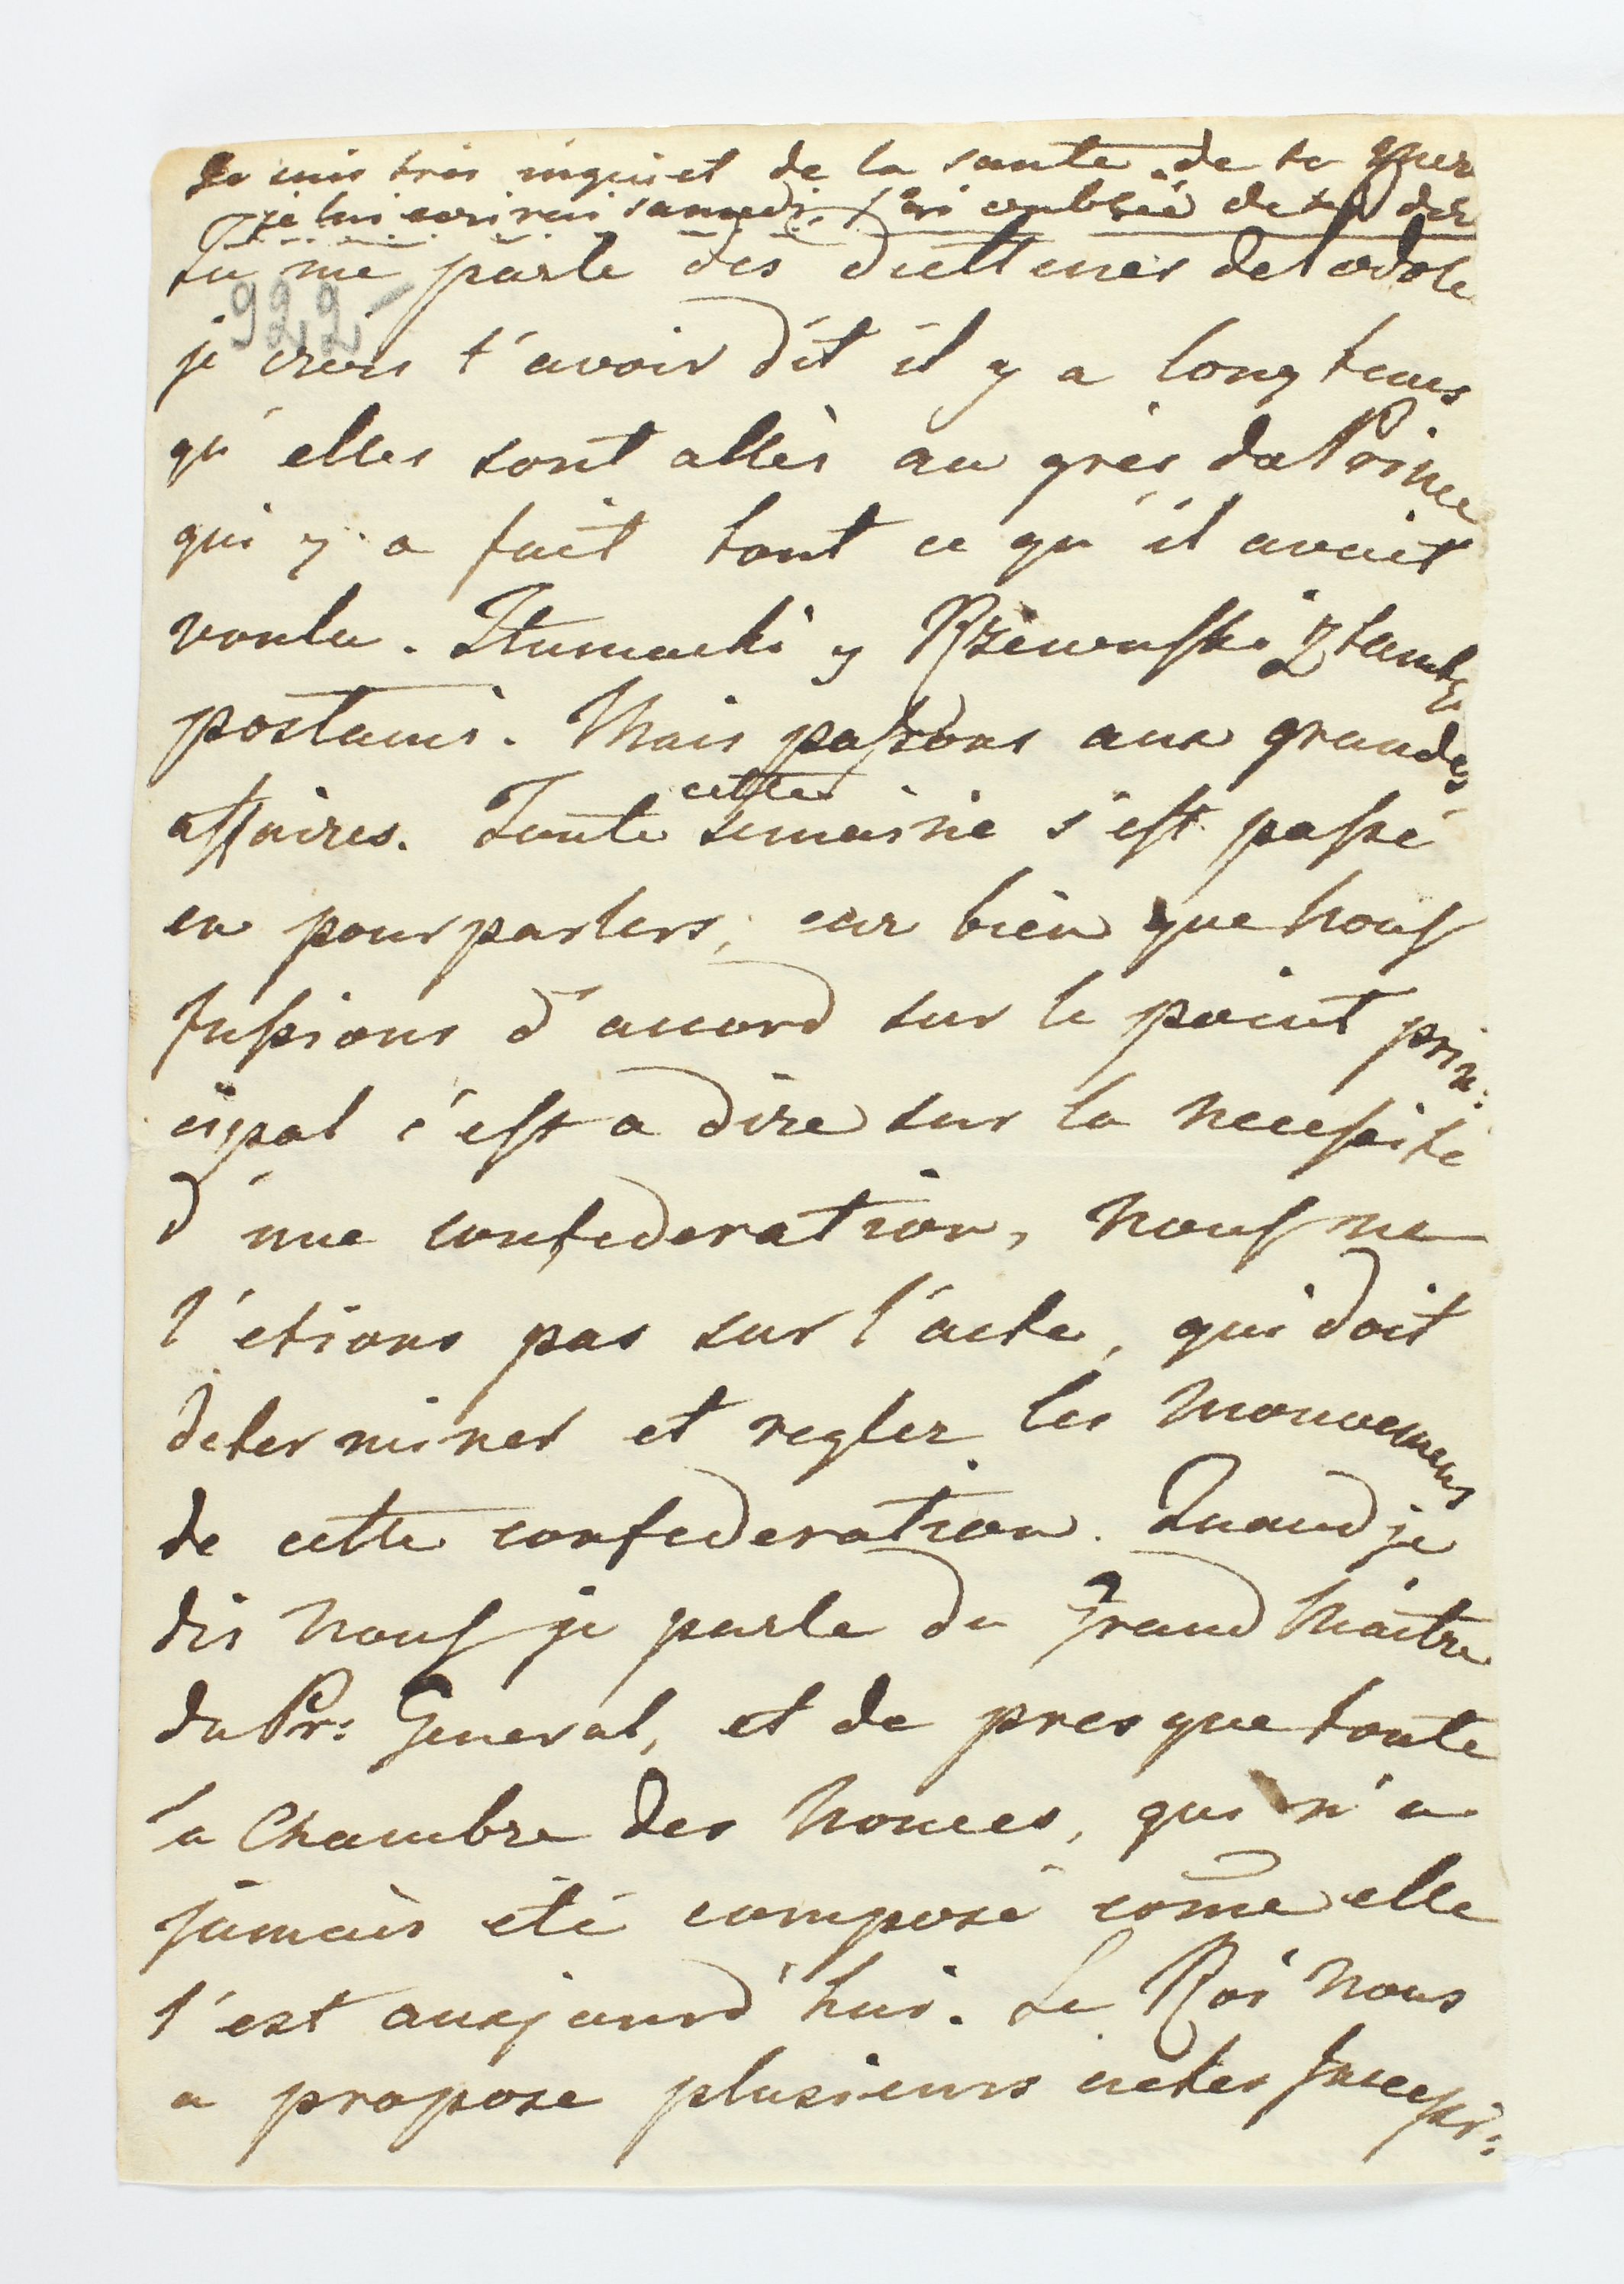 Je suis tres inquiet de la santé de ta
je lui ecrirai samedi, j'ai oublié de te
tu me parle des diettines de
922
je crois t'avoir dit il y a long tems
qu'elles sont allès au grès du Prince
qui y a fait tout ce qu'il avait
voulu. y Rzewuski z tamtąd
postami. Mais passons aux grandes
affaires. Toute cette semaine s'est passé
en pourparlers, car bien que nous
fussions d'accord sur le point prin:
cipal c'est a dire sur la necessité
d'une confederation, nous ne
l'etions pas sur l'acte, qui doit
determiner et regler les mouvemens
de cette confederation. Quand je
dis nous je parle du Grand Maitre
du Pr: General, et de presque toute
la Chambre des Nonces, qui n'a
jamais été composé come elle
l'est aujourd'hui. Le Roi nous
a propose plusieurs actes successi: